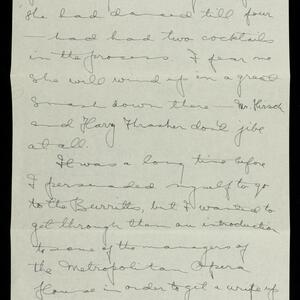 she had danced till four
— had had two cocktails
in the process. I fear me
she will wind up in a great
smash down there — Mr. Hirsch
and Harry Thrasher don't jibe
at all.
It was a long time before
I persuaded myself to go
to the Burritts, but I wanted to
get through them an introduction
to some of the managers of
the Metropolitan Opera
House in order to get a write up